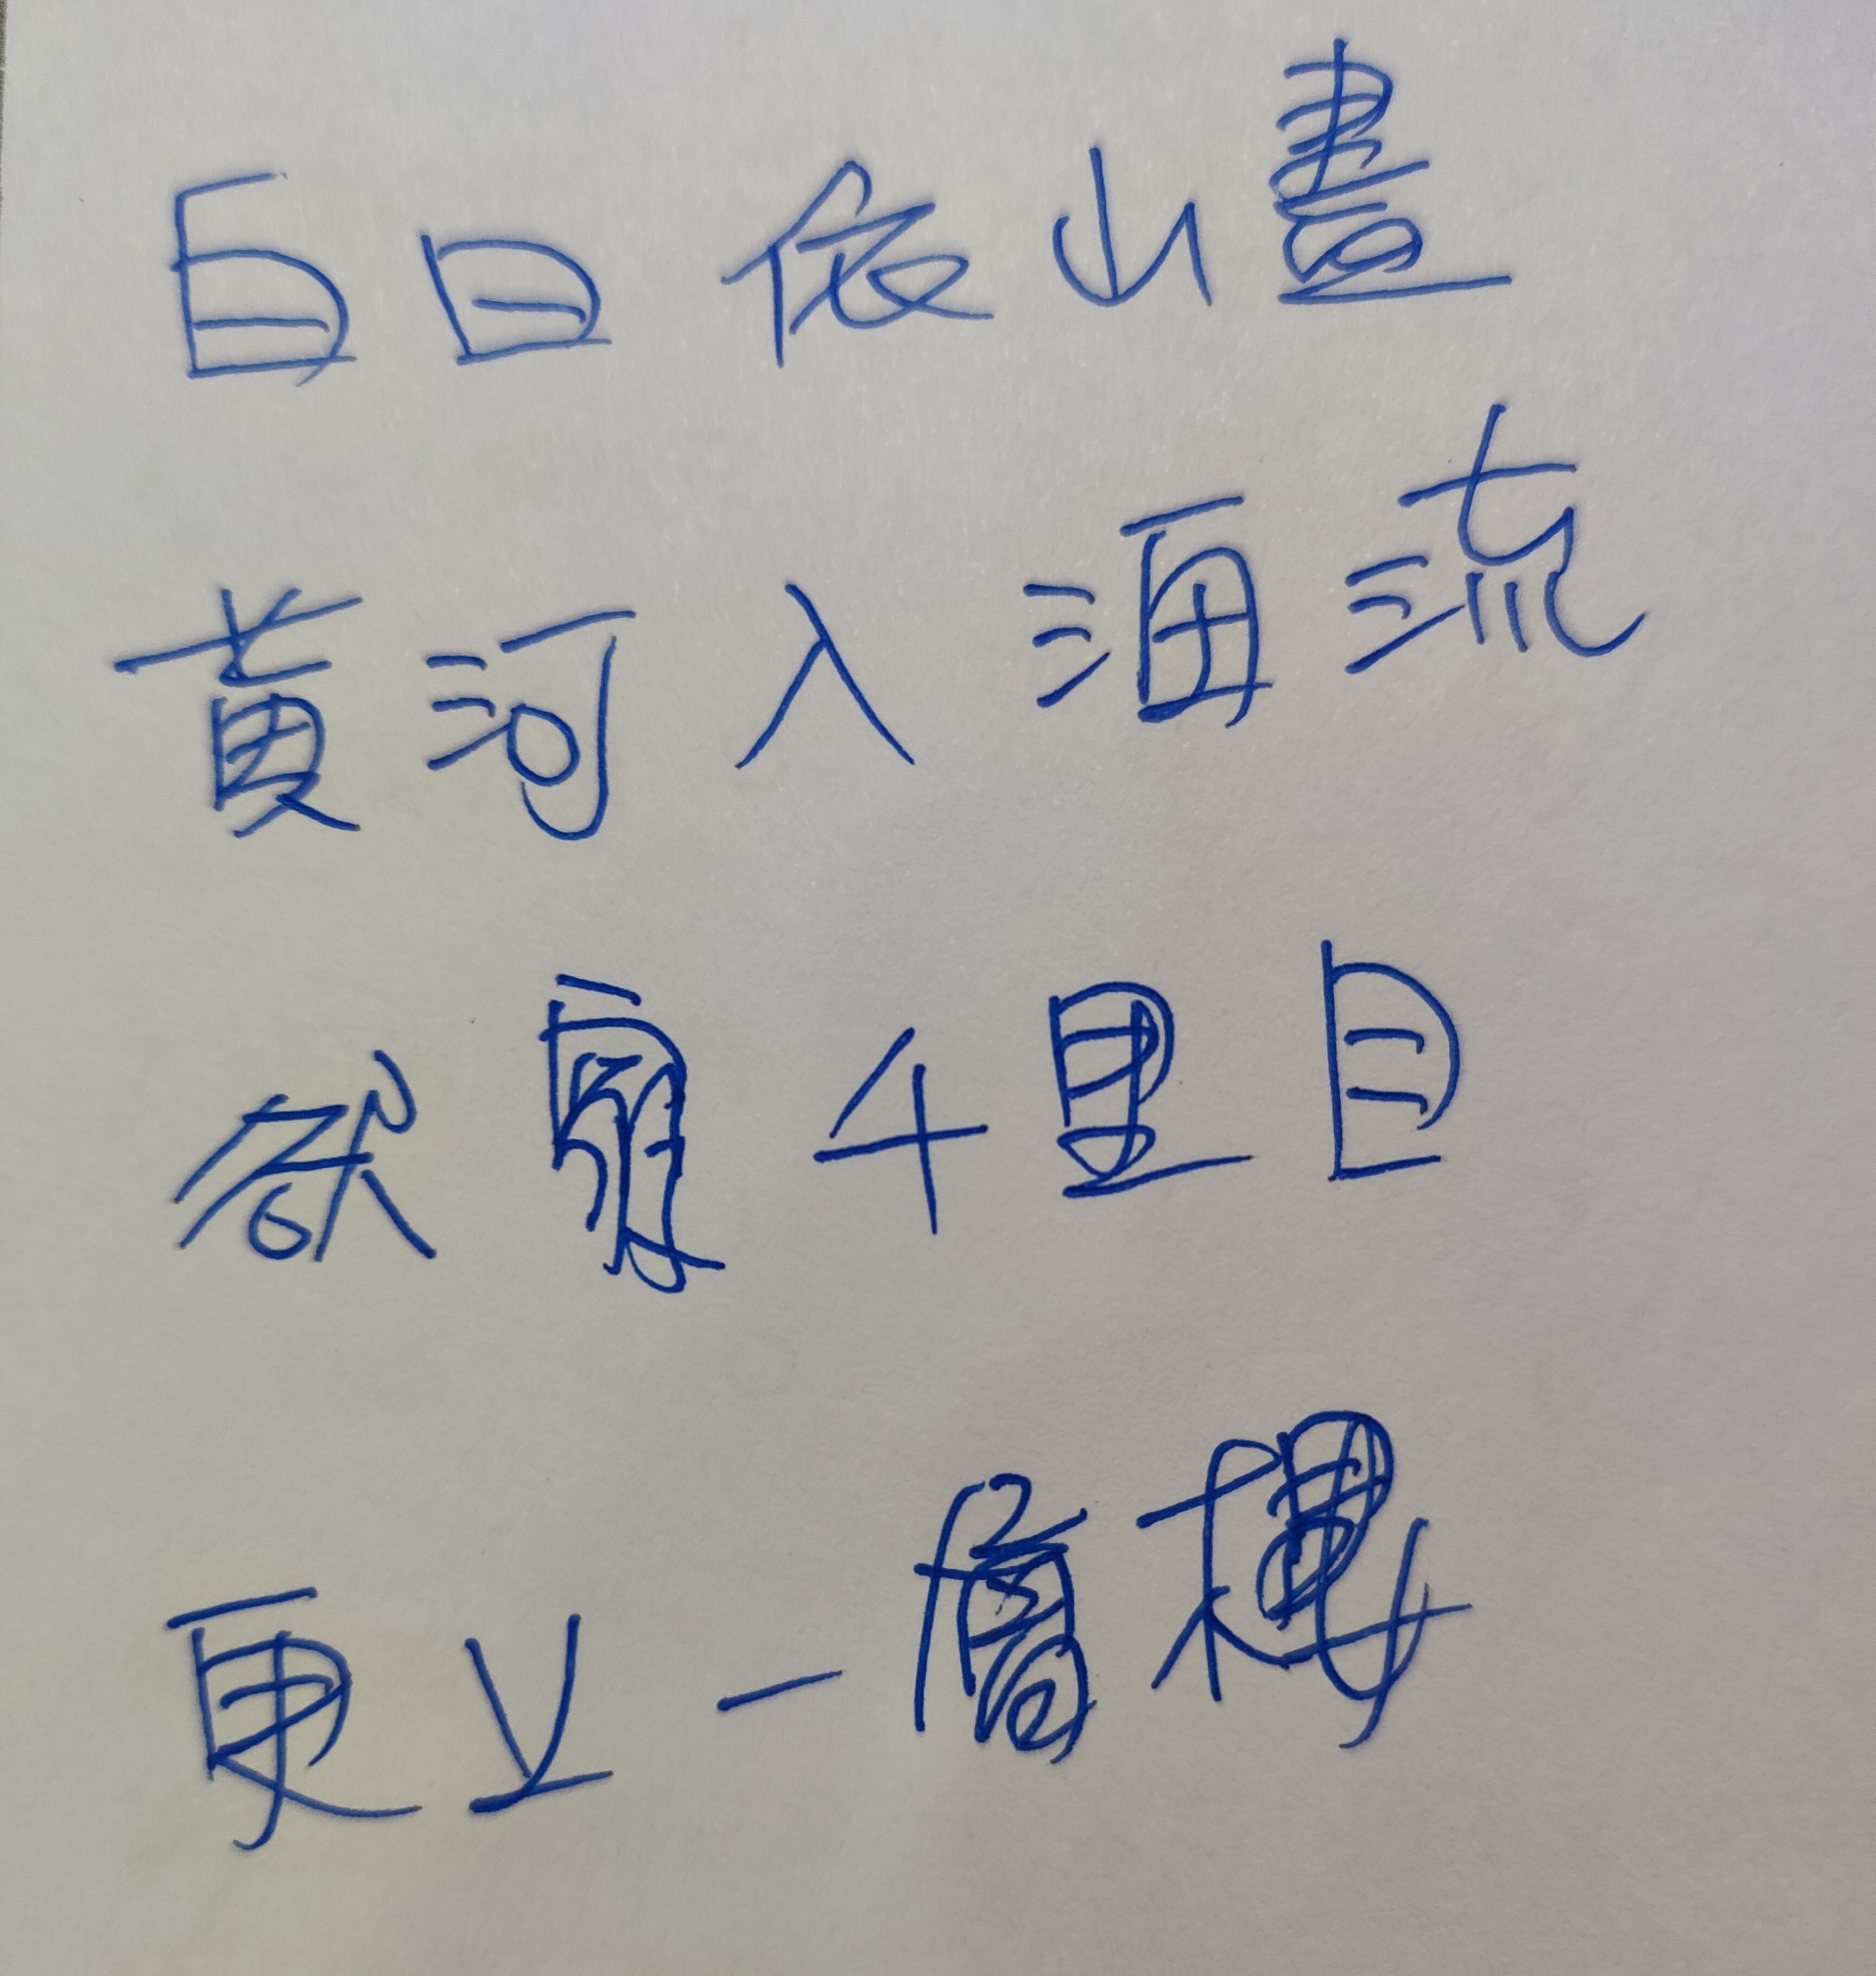 白日依山盡
黃河入海流
欲窮千里目
更立一層樓